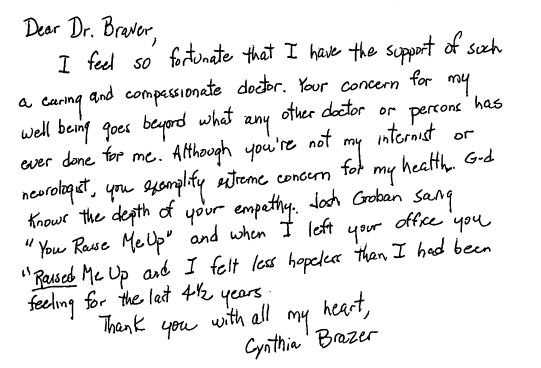 Dear Dr. Braver,
I feel so fortunate that I have the support of such
a caring and compassionate doctor. Your concern for my
well being goes beyond what any other doctor or persons has
ever done for me. Although you're not my internist or
neurologist, you exemplify extreme concern for my health. G-d
knows the depth of your empathy. Josh Groban sang
"You Raise Me Up" and when I left your office you
"Raised Me Up and I felt less hopeless than I had been
feeling for the last 4½ years.
Thank you with all my heart,
Cynthia Brazer